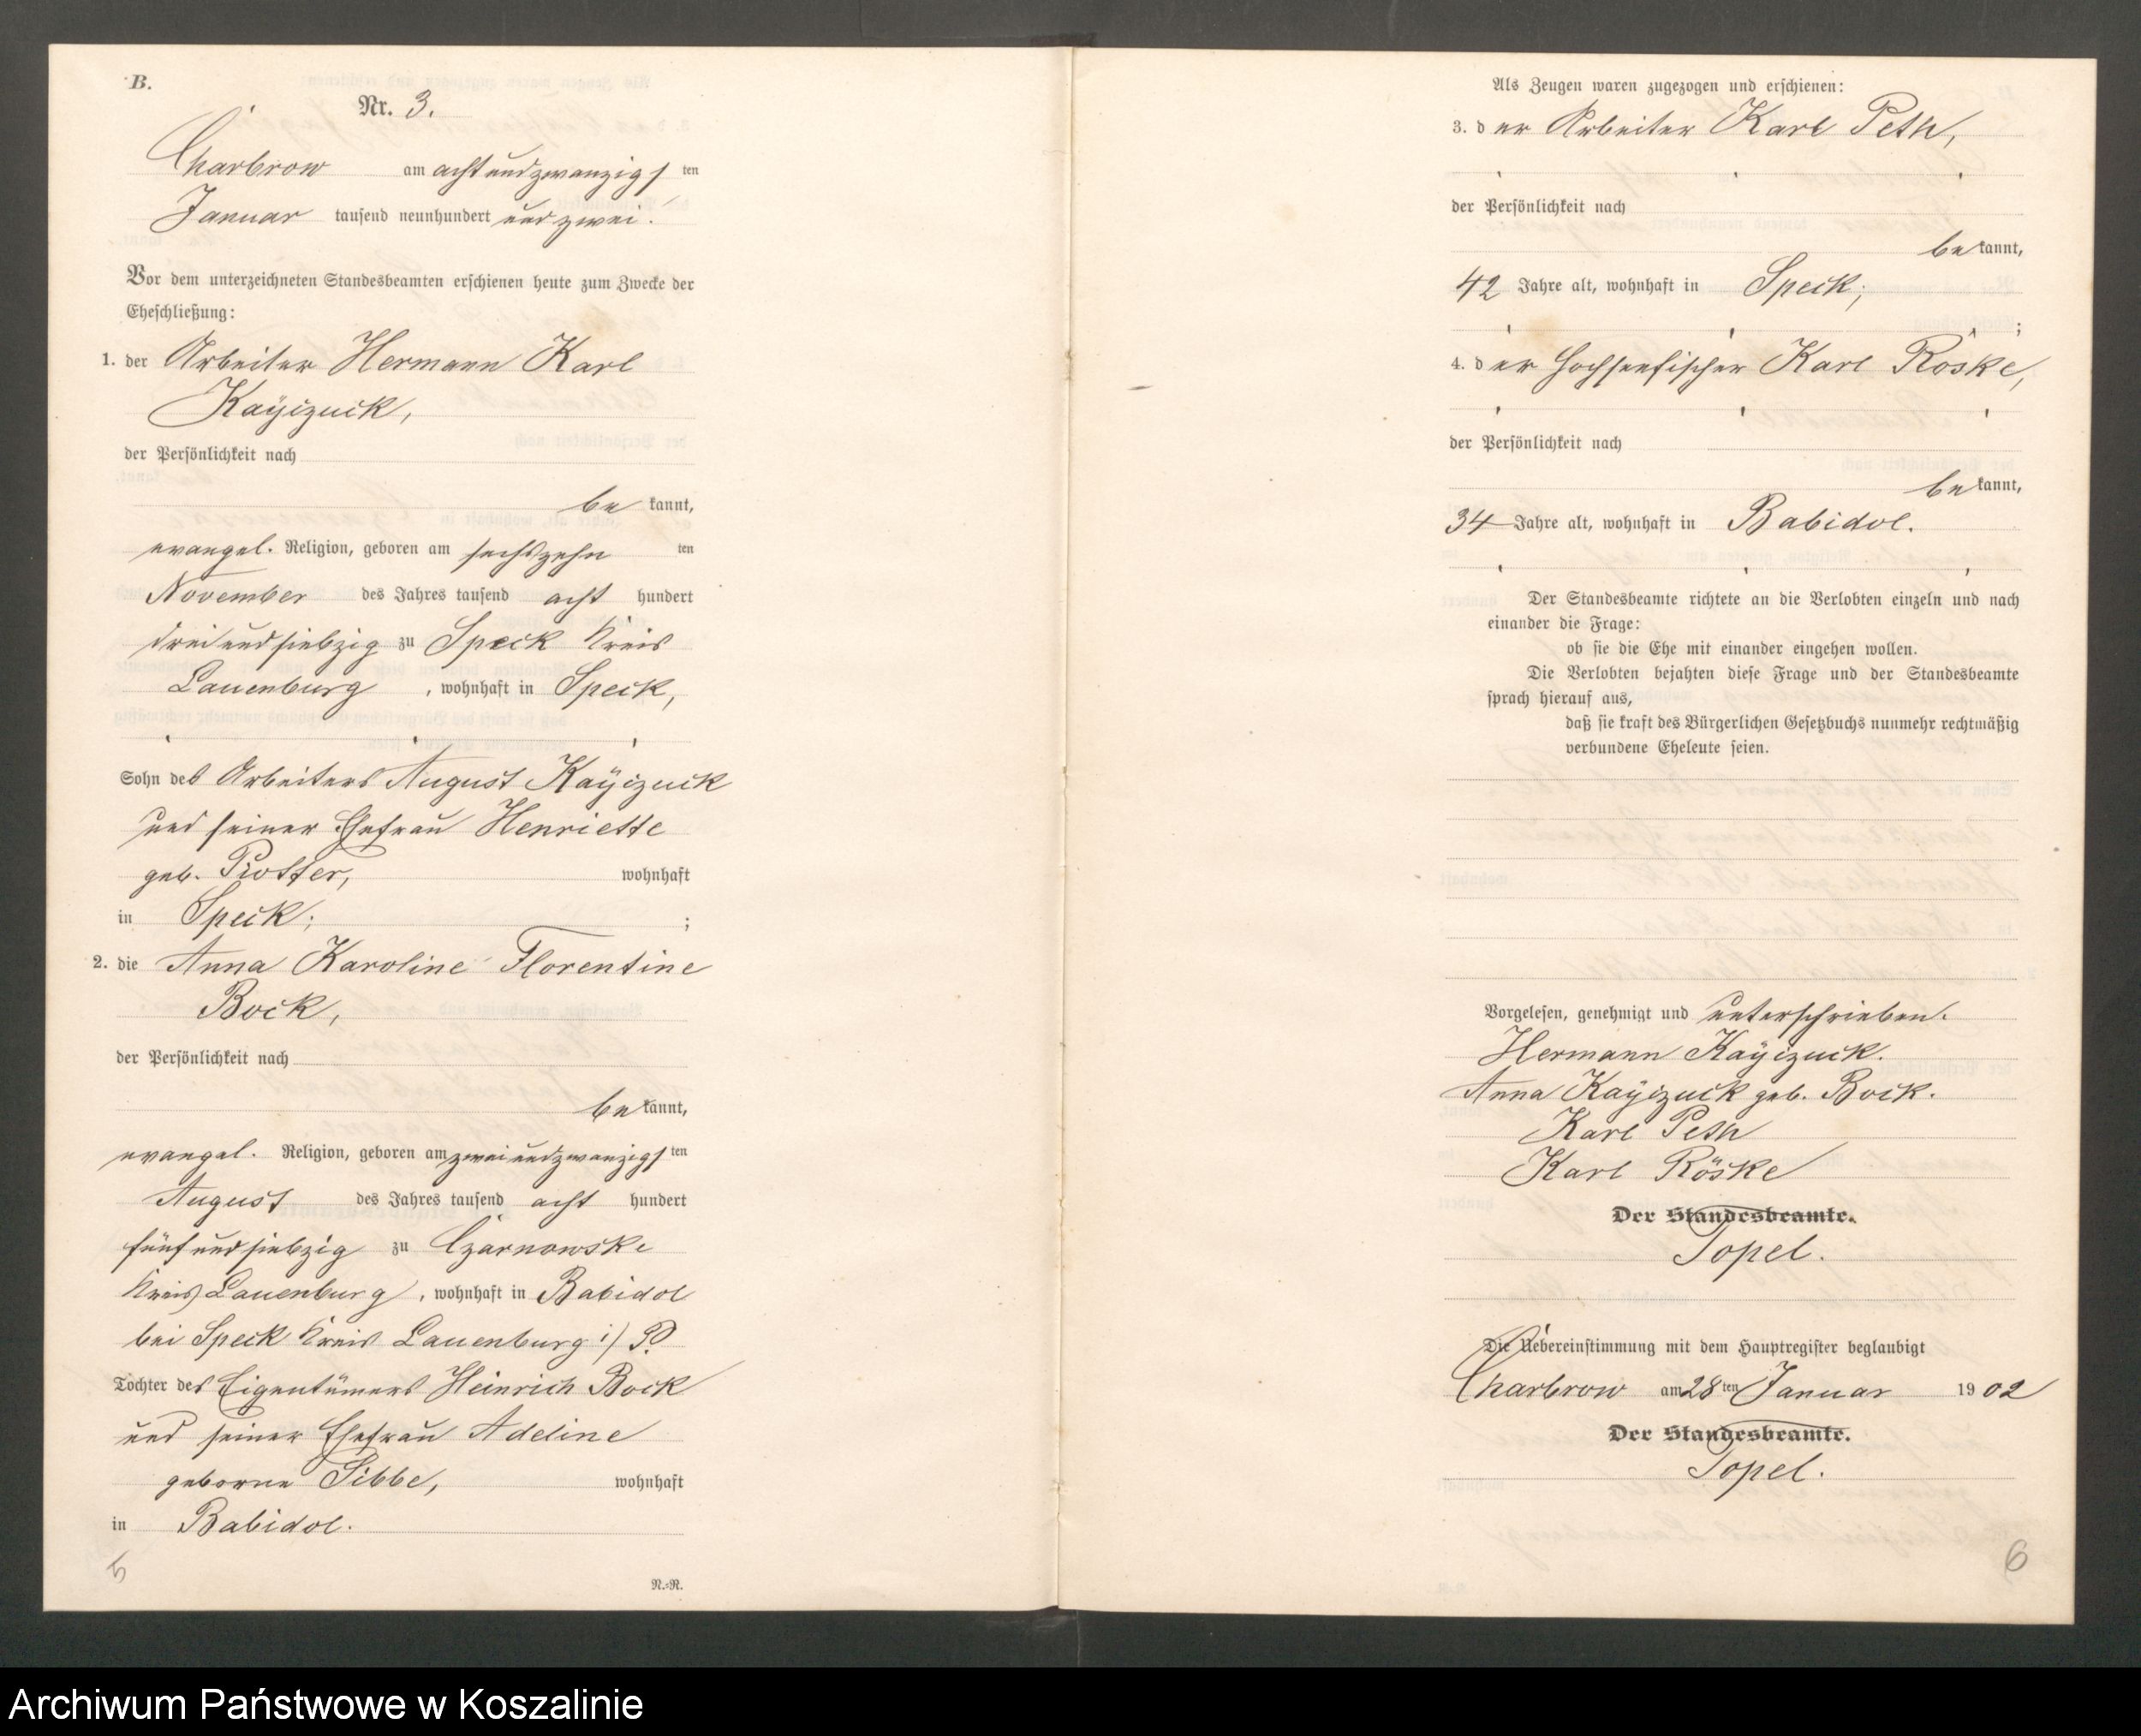 B.
Nr. 3.
Charbrow am achtundzwanzigs ten
Januar tausend neunhundert und zwei.
Vor dem unterzeichneten Standesbeamten erschienen heute zum Zwecke der
Eheschließung:
1. der Arbeiter Hermann Karl
Kaÿizuck,
der Persönlichkeit nach
be kannt,
evangel. Religion, geboren am sechszehn ten
November des Jahres tausend acht hundert
dreiundsiebzig zu Speck Kreis
Lauenburg, wohnhaft in Speck,
Sohn des Arbeiters August Kaÿizuck
und seiner Ehefrau Henriette
geb. wohnhaft
in Speck; ;
2. die Anna Karoline Florentine
Bock,
der Persönlichkeit nach
be kannt,
evangel. Religion, geboren am zweiundzwanzigs ten
August des Jahres tausend acht hundert
fünfundsiebzig zu Czarnowske
Kreis Lauenburg, wohnhaft in Babidol
bei Speck Kreis Lauenburg
Tochter des Eigentümers Heinrich Bock
und seiner Ehefrau Adeline
geborne Sibbe, wohnhaft
in Babidol.
5
N.=R.
Als Zeugen waren zugezogen und erschienen:
3. der Arbeiter Karl Peth,
der Persönlichkeit nach
be kannt,
42 Jahre alt, wohnhaft in Speck;
;
4. der Hochseefischer Karl Röske,
der Persönlichkeit nach
be kannt,
34 Jahre alt, wohnhaft in Babidol.
Der Standesbeamte richtete an die Verlobten einzeln und nach
einander die Frage:
ob sie die Ehe mit einander eingehen wollen.
Die Verlobten bejahten diese Frage und der Standesbeamte
sprach hierauf aus,
daß sie kraft des Bürgerlichen Gesetzbuchs nunmehr rechtmäßig
verbundene Eheleute seien.
Vorgelesen, genehmigt und unterschrieben.
Hermann Kaÿizuck.
Anna Kaÿizuck geb. Bock.
Karl Peth
Karl Röske
Der Standesbeamte.
Topel.
Die Uebereinstimmung mit dem Hauptregister beglaubigt
Charbrow am 28 ten Januar 1902
Der Standesbeamte.
Topel.
6
Archiwum Państwowe w Koszalinie